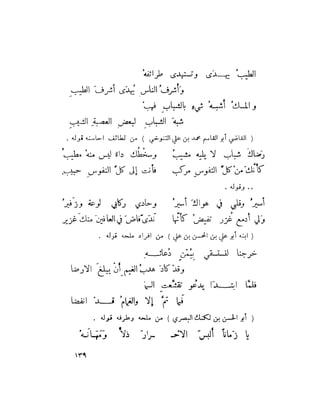 الطيبُ يهــدَى وتستهدى طرائفهُ
وَأشرفُ الناس يُهدَى أشرفَ الطيبِ
و المِسكُ أشبهُ شيءٍ بالشباب فهبْ
شبهَ الشبابِ لبعضِ العصبةِ الشيبِ
( القاضي أبو القاسم محمد بن علي التنوخي ) من لطائف احاسنه قوله .
رضاكَ شبابٌ لا يليهِ مشيبُ وسخْطُكَ داءٌ ليس منهُ مطيبُ
كأنَّكَ منْ كلِّ النفوسِ مركبٌ فأنتَ إلى كلِّ النفوسِ حبيبُ
.. وقوله .
أسيرُ وقلبي في هواكَ أسيرُ وحادي ركابي لوعة وزفيرُ
ولي أدمع غُزر تفيضُ كأنّها ندًى فاضَ في العافينَ منكَ غزير
( ابنه أبو علي بن المحسن بن علي ) من افراد ملحه قوله .
خرجنا لنستسقي بيُمْنِ دُعائــهِ
وقدْ كادَ هدبُ الغيم أنْ يبلغَ الارضا
فلمَّا ابتــدا يدعُو تقشّعت السما
فما تمَّ إلا والغمامُ قــد انفضا
( أبو الحسن بن لنكك البصري ) من ملحه وظرفه قوله .
يا زمانًا ألبسَ الاحـرارَ ذلاًّ ومَهــانَــهْ
١٣٩